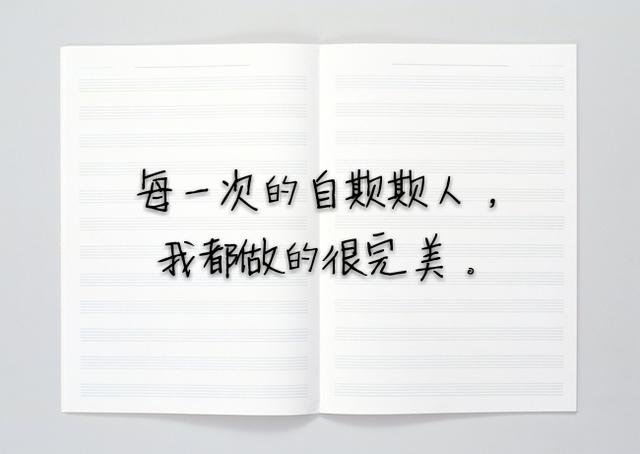 每一次的自欺欺人，
我都做的很完美。